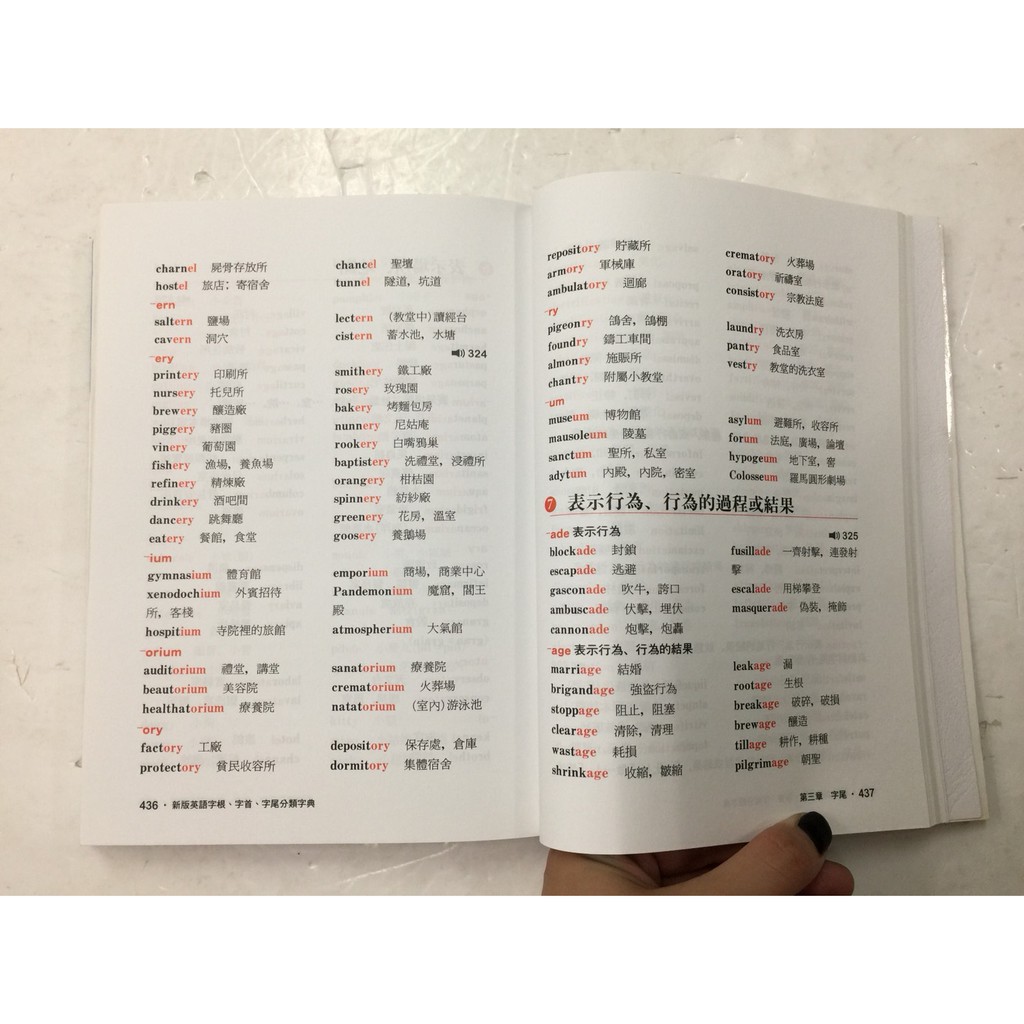 charnel 屍骨存放所 chancel 聖壇
hostel 旅店；寄宿舍 tunnel 隧道，坑道
-ern
saltern 鹽場 lectern （教堂中）讀經台
cavern 洞穴 cistern 蓄水池，水塘
-ery 324
printery 印刷所 smithery 鐵工廠
nursery 托兒所 rosery 玫瑰園
brewery 釀造廠 bakery 烤麵包房
piggery 豬圈 nunnery 尼姑庵
vinery 葡萄園 rookery 白嘴鴉巢
fishery 漁場，養魚場 baptistery 洗禮堂，浸禮所
refinery 精煉廠 orangery 柑桔園
drinkery 酒吧間 spinnery 紡紗廠
dancery 跳舞廳 greenery 花房，溫室
eatery 餐館，食堂 goosery 養鵝場
-ium
gymnasium 體育館 emporium 商場，商業中心
xenodochium 外賓招待 Pandemonium 魔窟，閻王
所，客棧 殿
hospitium 寺院裡的旅館 atmospherium 大氣館
-orium
auditorium 禮堂，講堂 sanatorium 療養院
beautorium 美容院 crematorium 火葬場
healthatorium 療養院 natatorium （室內）游泳池
-ory
factory 工廠 depository 保存處，倉庫
protectory 貧民收容所 dormitory 集體宿舍
436・新版英語字根、字首、字尾分類字典
repository 貯藏所 crematory 火葬場
armory 軍械庫 oratory 祈禱室
ambulatory 迴廊 consistory 宗教法庭
-ry
pigeonry 鴿舍，鴿棚 laundry 洗衣房
foundry 鑄工車間 pantry 食品室
almonry 施賑所 vestry 教堂的洗衣室
chantry 附屬小教堂
-um
museum 博物館 asylum 避難所，收容所
mausoleum 陵墓 forum 法庭，廣場，論壇
sanctum 聖所，私室 hypogeum 地下室，窖
adytum 內殿，內院，密室 Colosseum 羅馬圓形劇場
7 表示行為、行為的過程或結果
-ade 表示行為 325
blockade 封鎖 fusillade 一齊射擊，連發射
escapade 逃避 擊
gasconade 吹牛，誇口 escalade 用梯攀登
ambuscade 伏擊，埋伏 masquerade 偽裝，掩飾
cannonade 炮擊，炮轟
-age 表示行為、行為的結果
marriage 結婚 leakage 漏
brigandage 強盜行為 rootage 生根
stoppage 阻止，阻塞 breakage 破碎，破損
clearage 清除，清理 brewage 釀造
wastage 耗損 tillage 耕作，耕種
shrinkage 收縮，皺縮 pilgrimage 朝聖
第三章 字尾・437